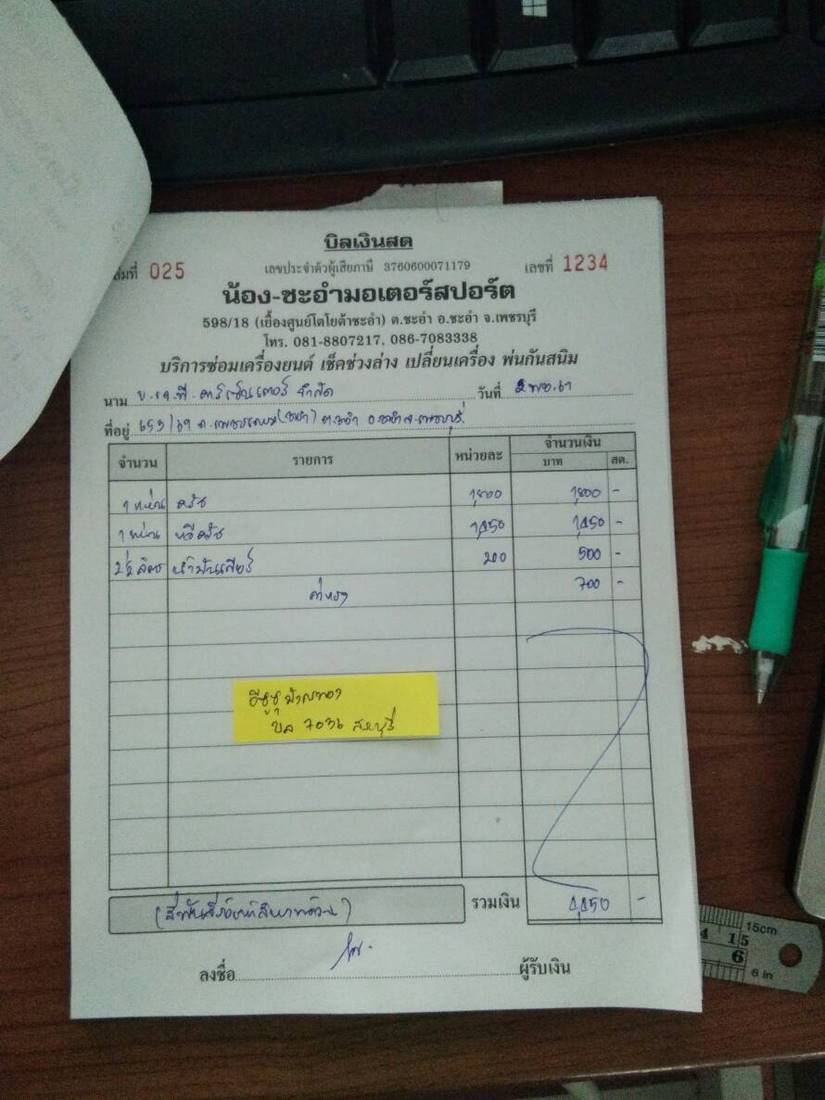 บิลเงินสด
ล่มที่ 025 เลขประจำตัวผู้เสียภาษี 3760600071179 เลขที่ 1234
น้อง-ชะอำมอเตอร์สปอร์ต
598/18 (เยื้องศูนย์โตโยต้าชะอำ) ต.ชะอำ อ.ชะอำ จ.เพชรบุรี
โทร. 081-8807217, 086-7083338
บริการซ่อมเครื่องยนต์ เช็คช่วงล่าง เปลี่ยนเครื่อง พ่นกันสนิม
นาม บ.เค.พี.คาร์เซ็นเตอร์ จำกัด วันที่ 2 พ.ย.61
ที่อยู่ 659/69 ถ.เพชรเกษม(ชะอำ) ต.ชะอำ อ.ชะอำ จ.เพชรบุรี
จำนวน รายการ หน่วยละ จำนวนเงิน
บาท สต.
1 แผ่น ครัช 1,800 1,800 -
1 แผ่น หวีครัช 1,150 1,150 -
2½ ลิตร น้ำมันเกียร์ 200 500 -
ค่าแรง 700 -
อีซูซุ
บล 7036
(สี่พันหนึ่งร้อยห้าสิบบาทถ้วน) รวมเงิน 4,150 -
ลงชื่อ ผู้รับเงิน
4 15 15cm
6 6 in